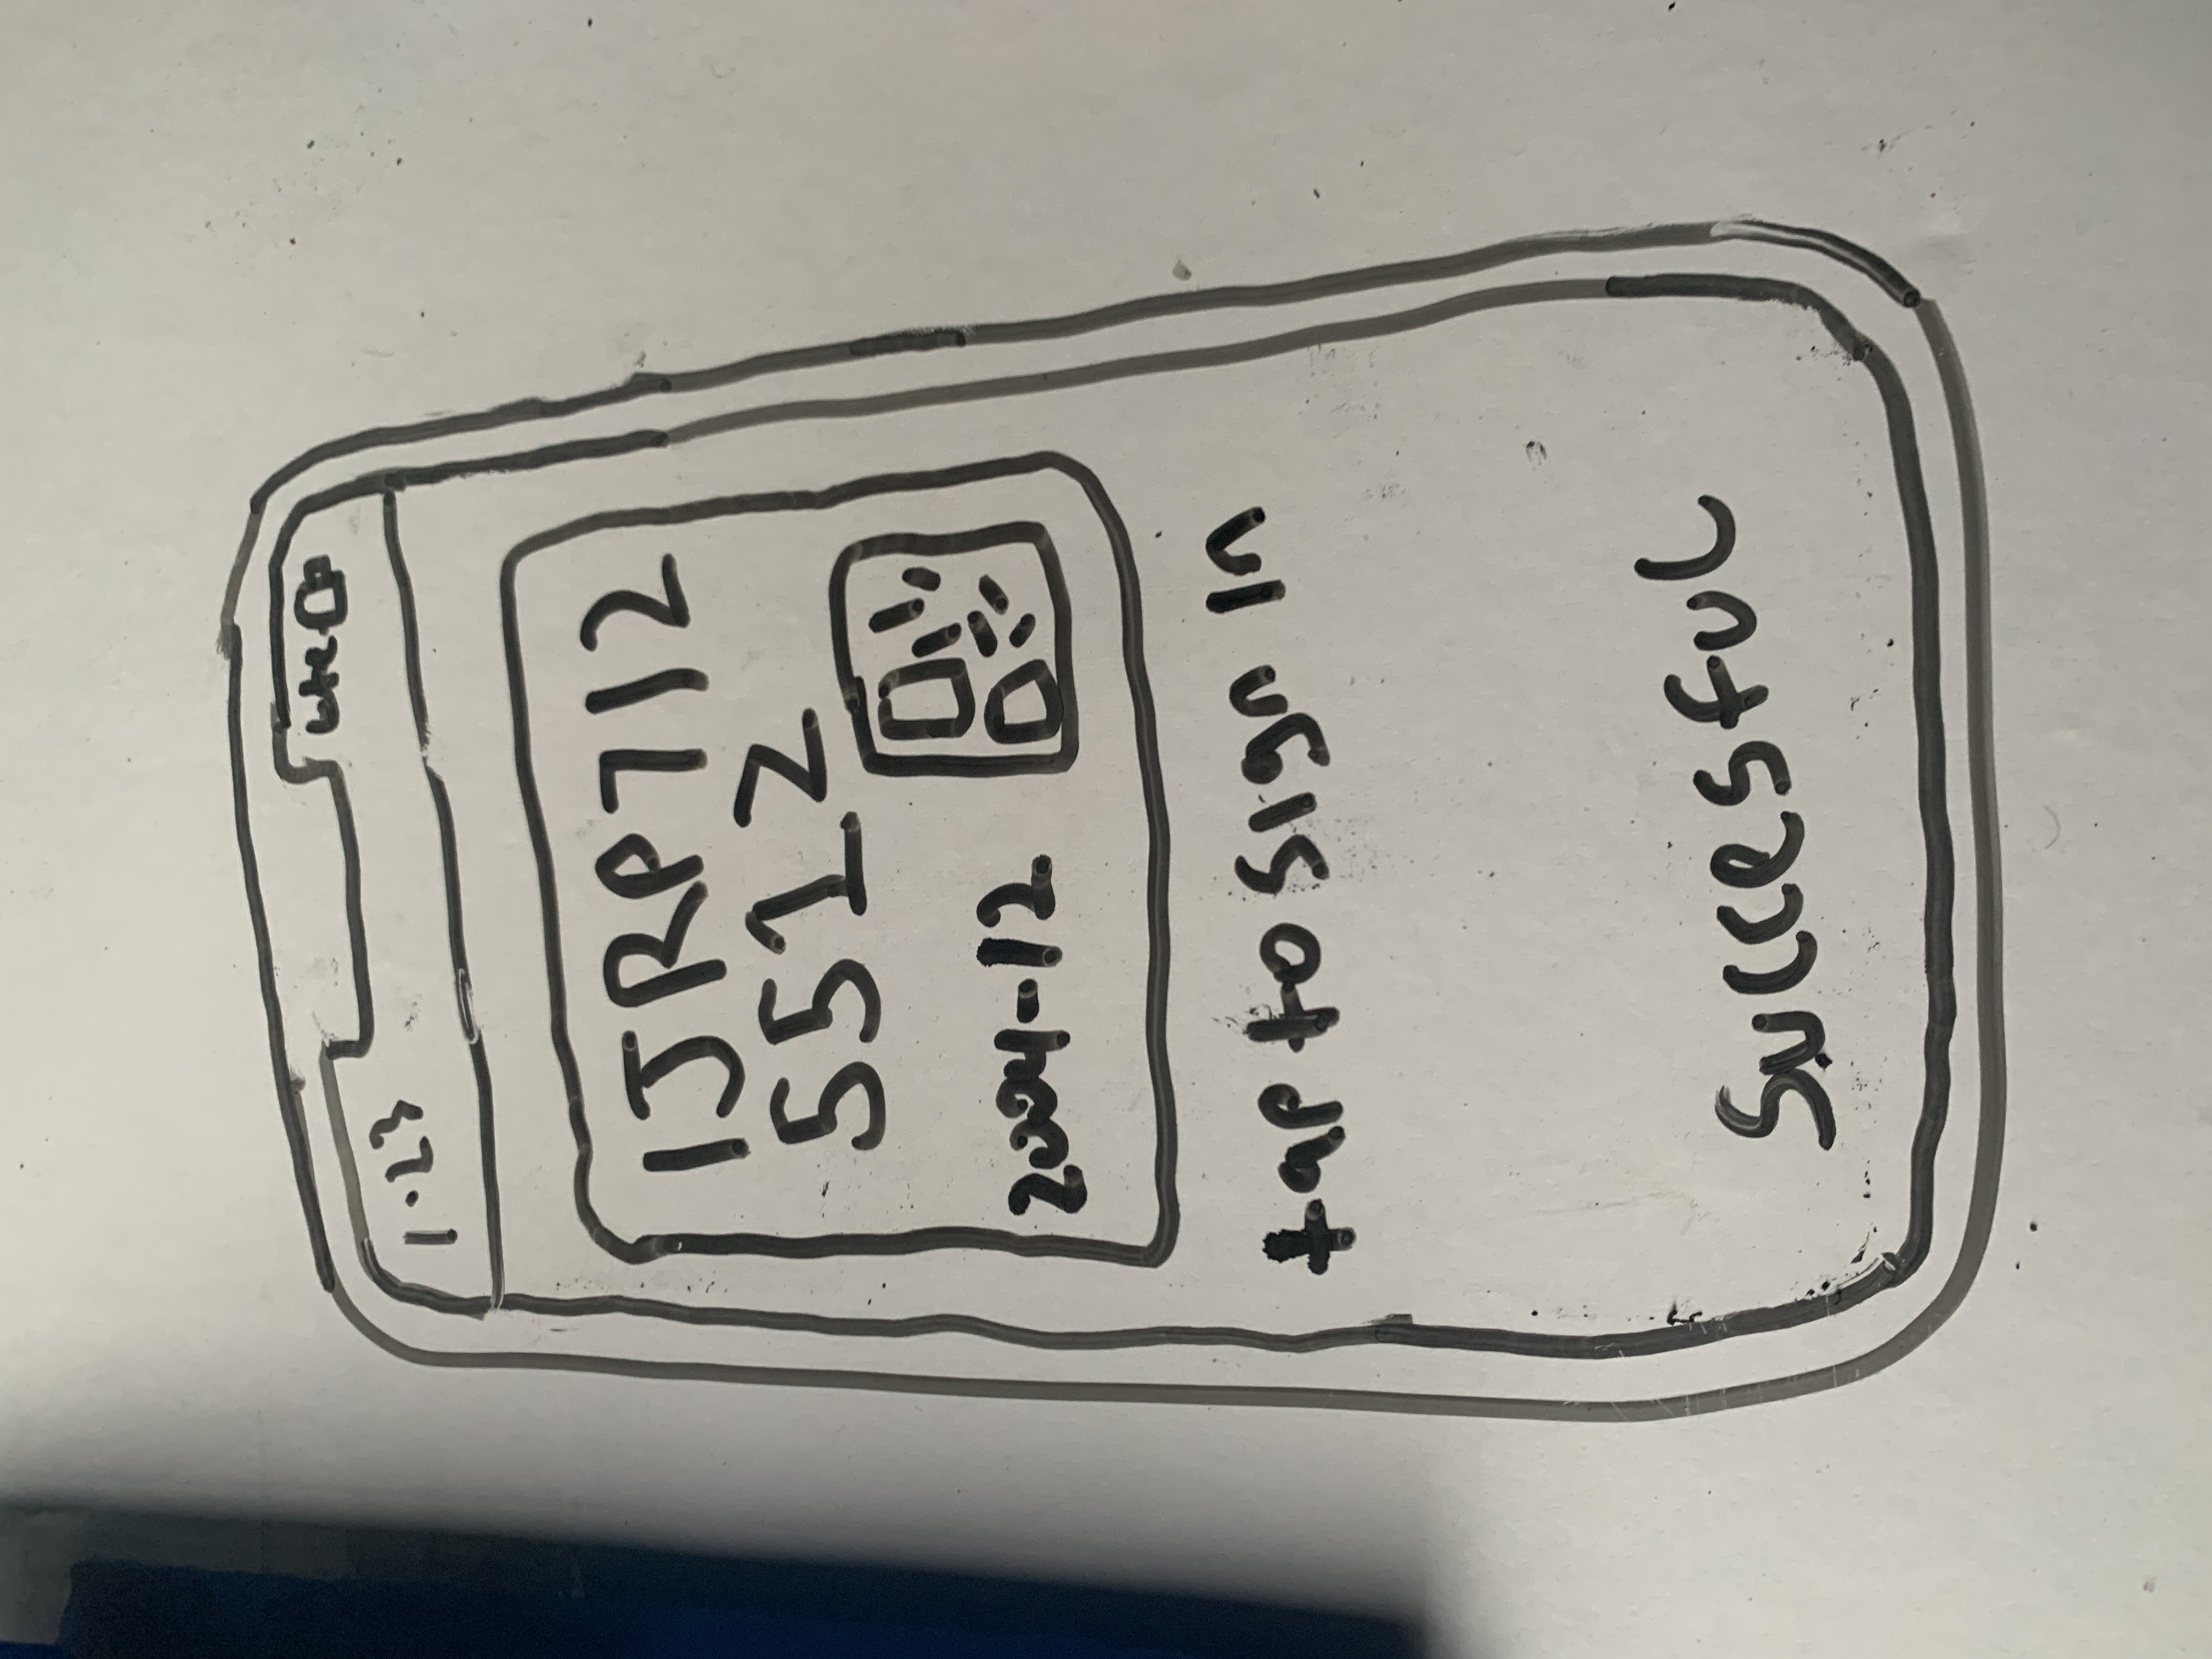 1:23 LTE
1JRP712
5512
2004-12
tap to sign in
Succesful